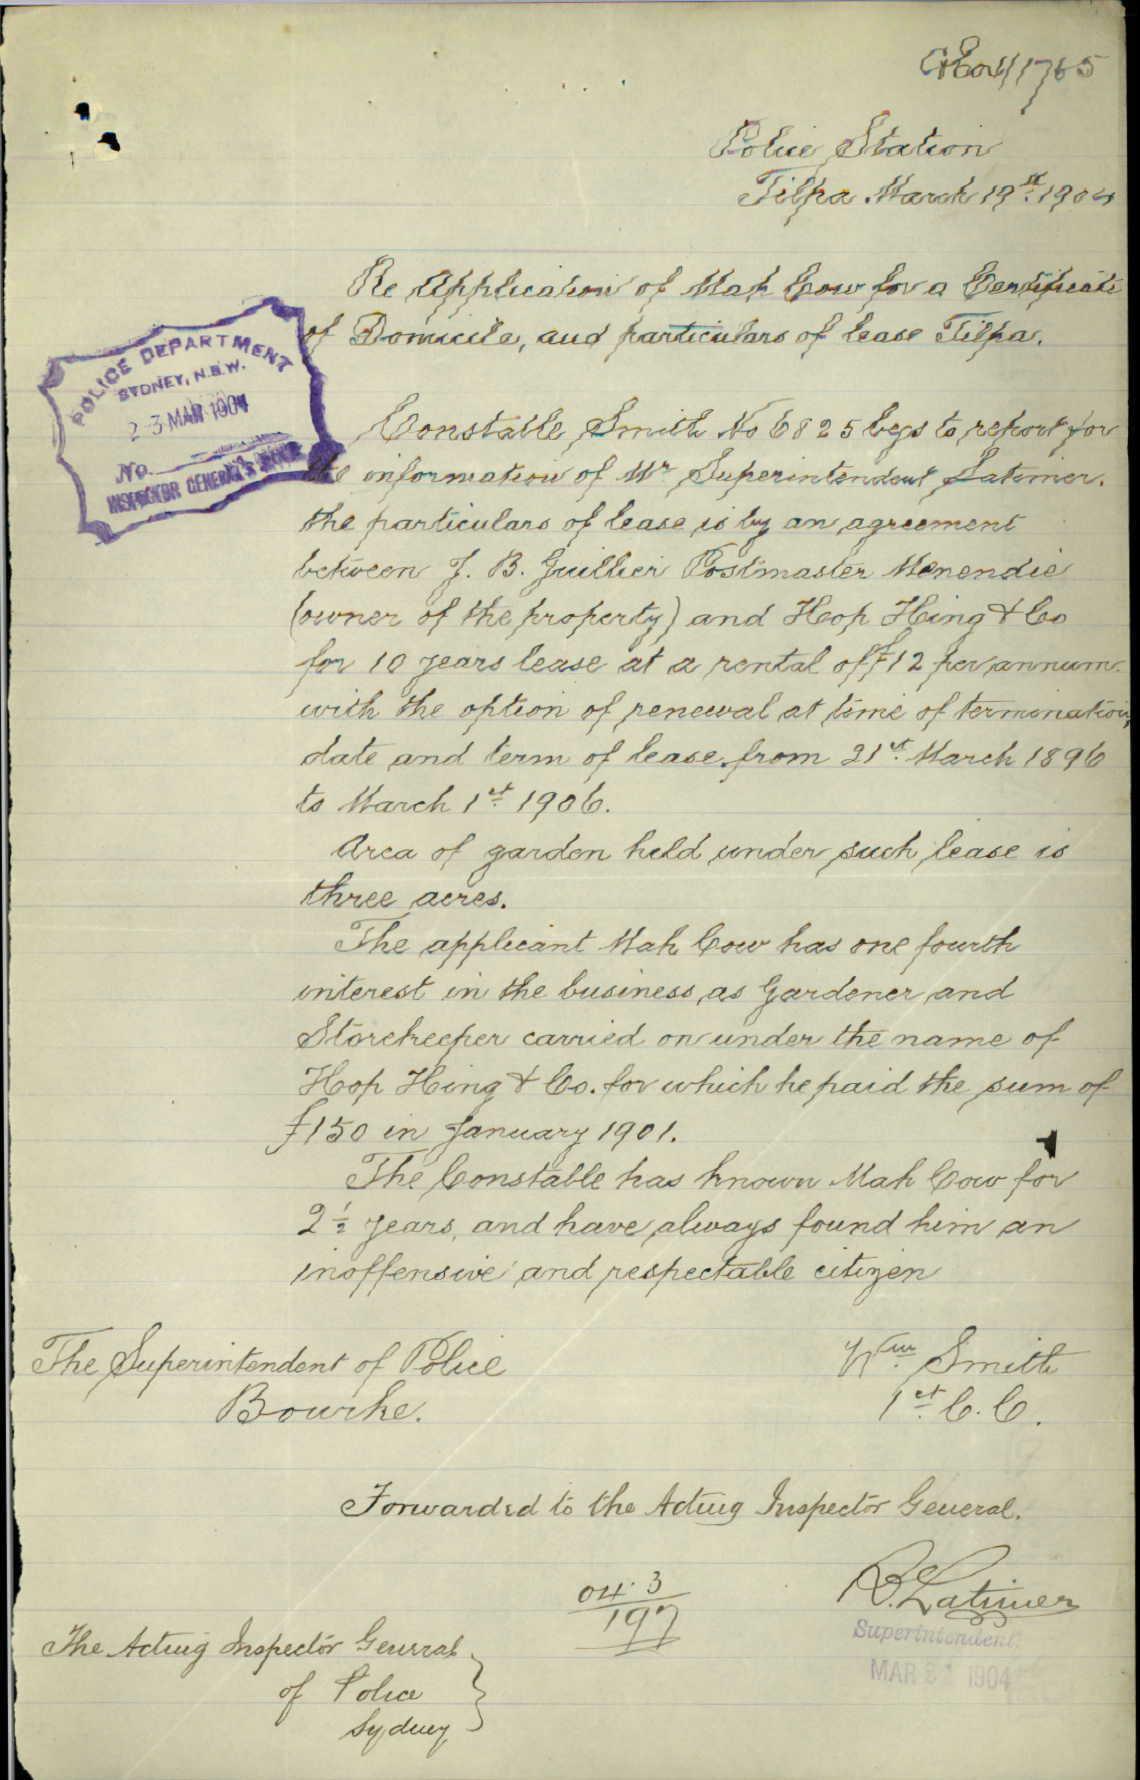 Police Station
Tilpa March 19th 1904
Re Application of Mah Cow for a Certificate
of Domicile, and particulars of lease Tilpa.
POLICE DEPARTMENT
SYDNEY, N.S.W.
23 MAR 1904
No.
INSPECTOR GENERAL'S OFFICE
Constable Smith No 6825 begs to report for
the information of Mr Superintendent Latimer.
the particulars of lease is by an agreement
between J. B. Guillier Postmaster Menendie
(owner of the property) and Hop Hing & Co
for 10 years lease at a rental of £12 per annum
with the option of renewal at time of termination,
date and term of lease from 21st March 1896
to March 1st 1906.
Area of garden held under such lease is
three acres.
The applicant Mah Cow has one fourth
interest in the business as Gardener and
Storekeeper carried on under the name of
Hop Hing & Co. for which he paid the sum of
£150 in January 1901.
The Constable has known Mah Cow for
2½ years, and have always found him an
inoffensive and respectable citizen
The Superintendent of Police
Bourke.
Wm Smith
1st C. C.
Forwarded to the Acting Inspector General.
04.3
197
B. Latimer
Superintendent.
MAR 1904
The Acting Inspector General
of Police
Sydney